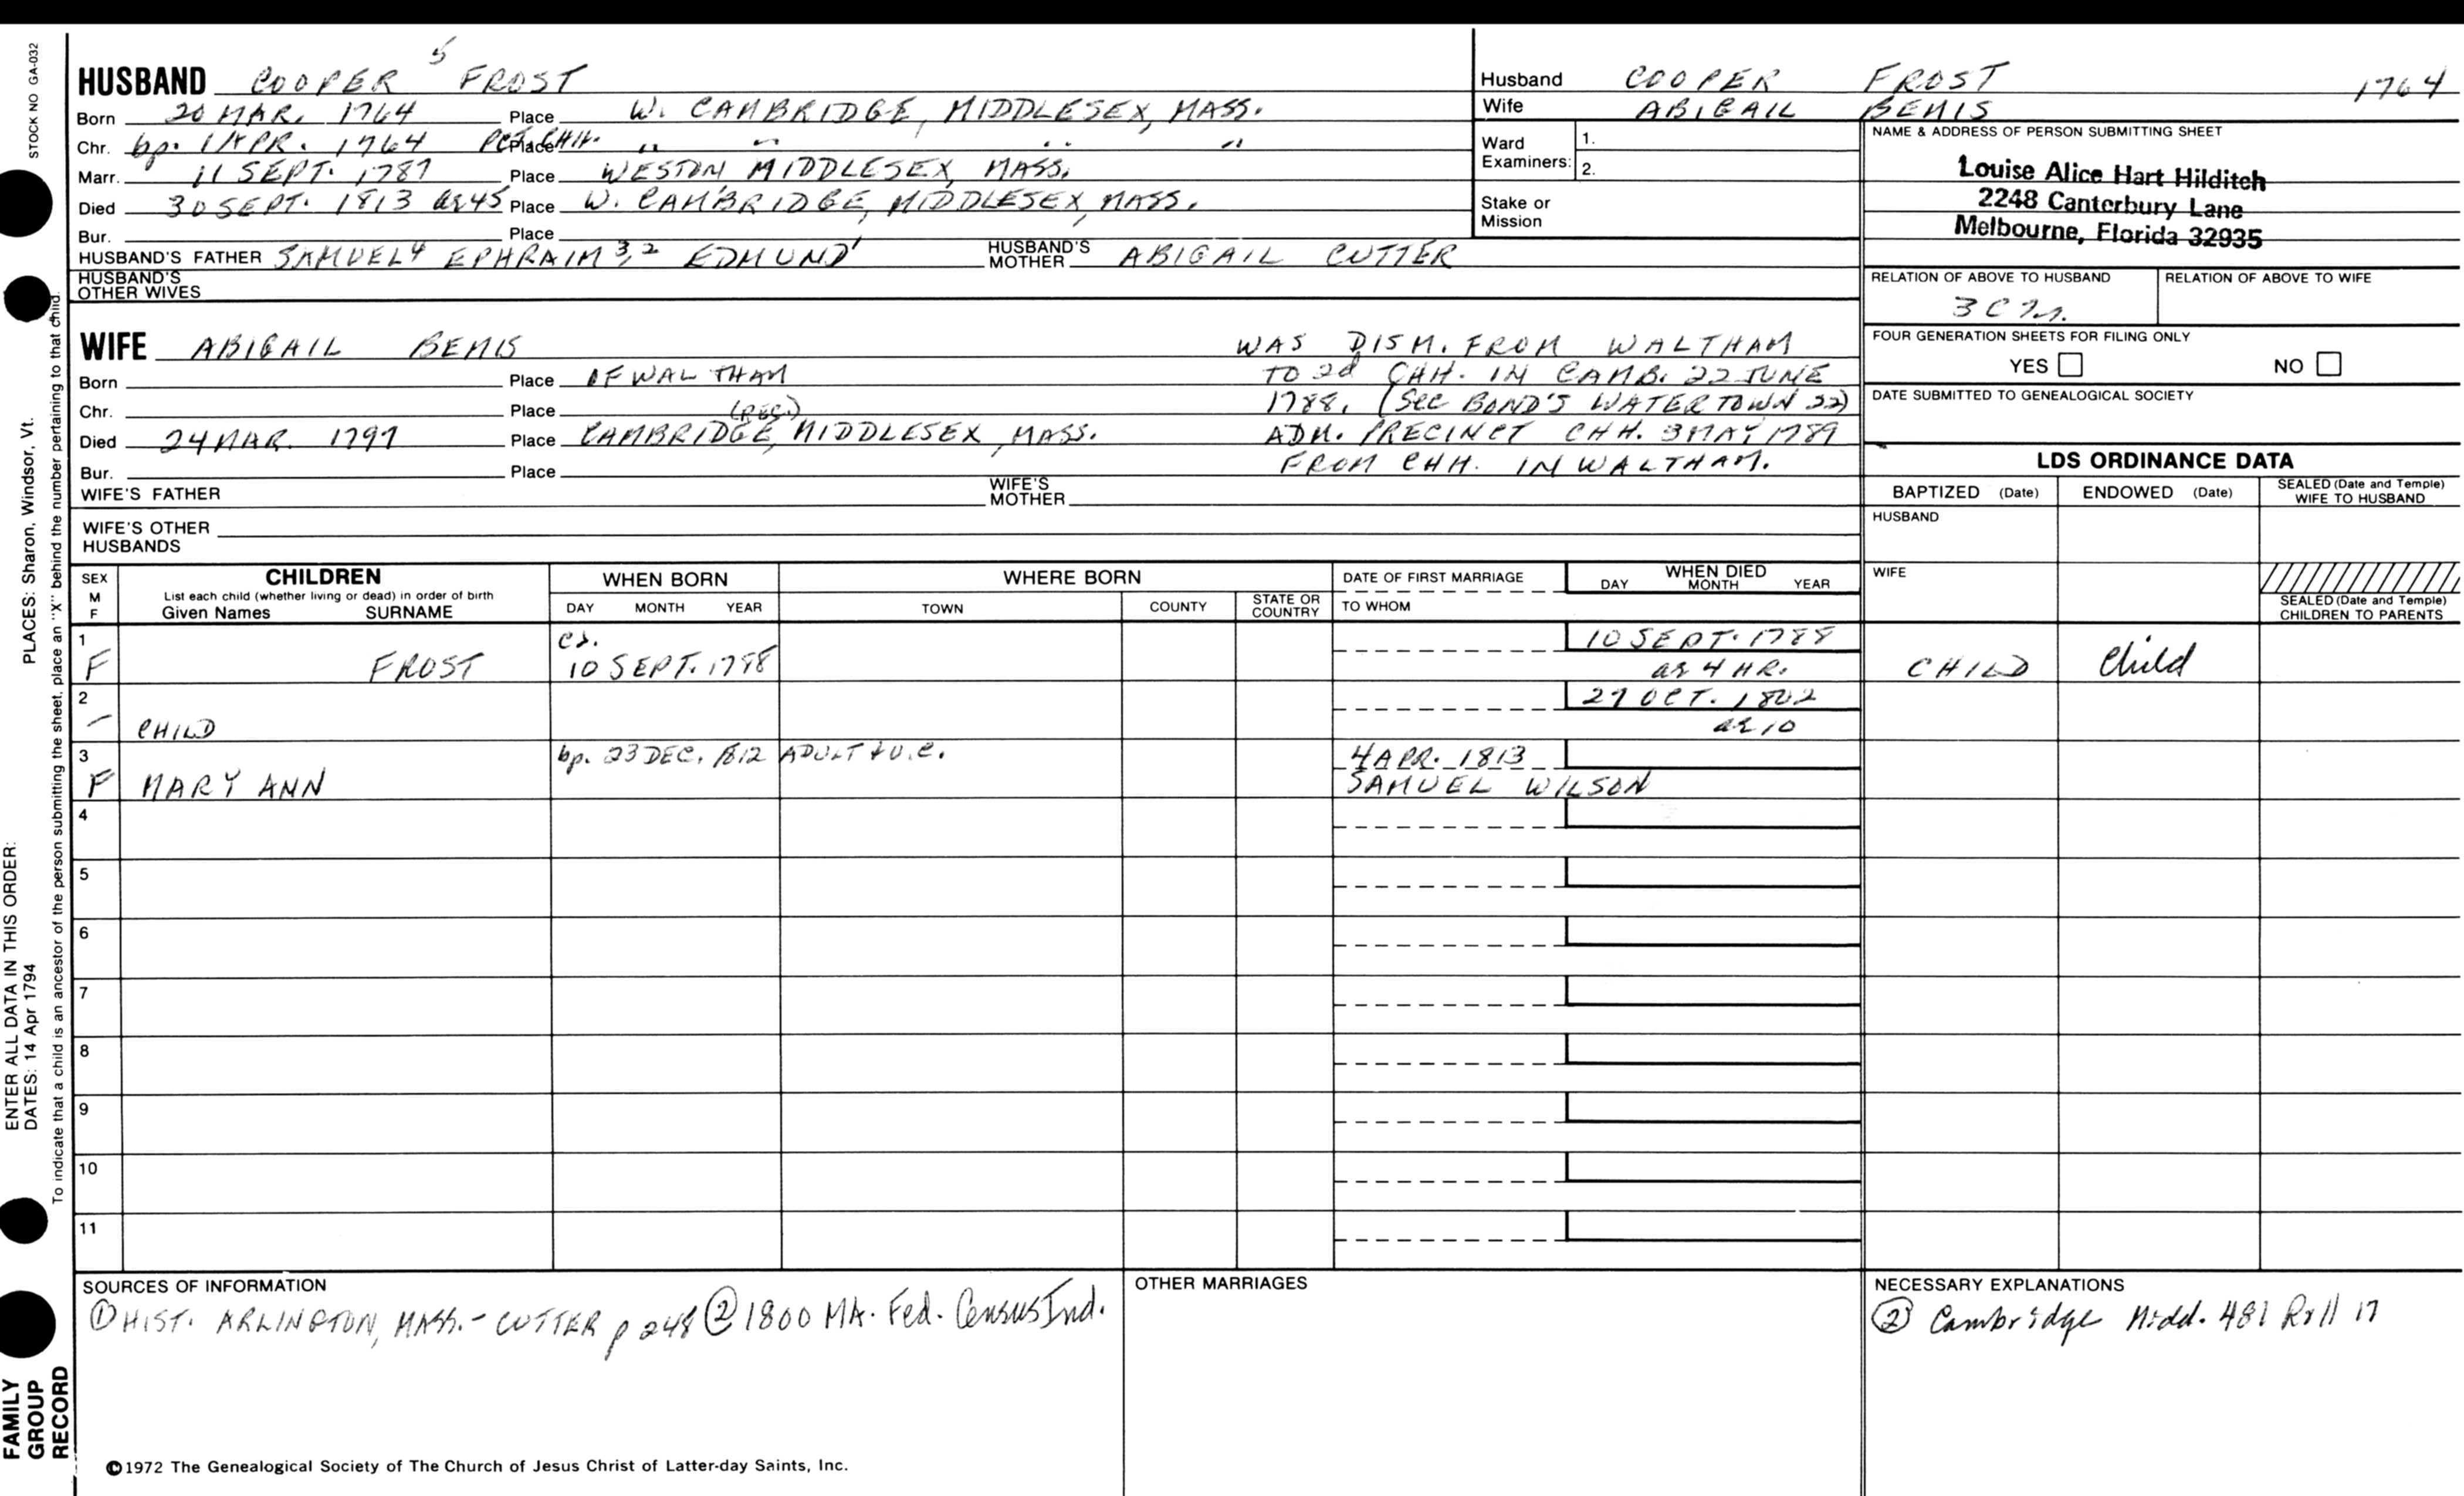 STOCK NO GA-032
PLACES: Sharon, Windsor, Vt.
ENTER ALL DATA IN THIS ORDER:
DATES: 14 Apr 1794
To indicate that a child is an ancestor of the person submitting the sheet, place an "X" behind the number pertaining to that child.
FAMILY GROUP RECORD
HUSBAND COOPER 5 FROST
Born 20 MAR. 1764 Place W. CAMBRIDGE, MIDDLESEX, MASS.
Chr. bp. 1 APR. 1764 PCT. CHH. Place " " " "
Marr. 11 SEPT. 1787 Place WESTON MIDDLESEX, MASS.
Died 30 SEPT. 1813 ae 45 Place W. CAMBRIDGE, MIDDLESEX, MASS.
Bur. Place
HUSBAND'S FATHER SAMUEL4 EPHRAIM3,2 EDMUND1 HUSBAND'S MOTHER ABIGAIL CUTTER
HUSBAND'S OTHER WIVES
WIFE ABIGAIL BEMIS
Born Place OF WALTHAM
Chr. Place (REC.)
Died 24 MAR. 1797 Place CAMBRIDGE, MIDDLESEX, MASS.
Bur. Place
WAS DISM. FROM WALTHAM
TO 2d CHH. IN CAMB. 22 JUNE
1788. (SEE BOND'S WATERTOWN 22)
ADM. PRECINCT CHH. 3 MAY 1789
FROM CHH. IN WALTHAM.
WIFE'S FATHER WIFE'S MOTHER
WIFE'S OTHER HUSBANDS
Husband COOPER FROST 1764
Wife ABIGAIL BEMIS
Ward Examiners: 1.
2.
Stake or Mission
NAME & ADDRESS OF PERSON SUBMITTING SHEET
Louise Alice Hart Hilditch
2248 Canterbury Lane
Melbourne, Florida 32935
RELATION OF ABOVE TO HUSBAND RELATION OF ABOVE TO WIFE
FOUR GENERATION SHEETS FOR FILING ONLY
YES NO
DATE SUBMITTED TO GENEALOGICAL SOCIETY
LDS ORDINANCE DATA
BAPTIZED (Date) ENDOWED (Date) SEALED (Date and Temple) WIFE TO HUSBAND
HUSBAND
WIFE
SEALED (Date and Temple) CHILDREN TO PARENTS
SEX M F CHILDREN WHEN BORN WHERE BORN DATE OF FIRST MARRIAGE WHEN DIED
List each child (whether living or dead) in order of birth
Given Names SURNAME DAY MONTH YEAR TOWN COUNTY STATE OR COUNTRY TO WHOM DAY MONTH YEAR
1 10 SEPT. 1788
F FROST 10 SEPT. 1788 ae 4 HR. CHILD Child
2 27 OCT. 1802
- CHILD ae 10
3 bp. 23 DEC. 1812 ADULT & U.C. 4 APR. 1813
F MARY ANN SAMUEL WILSON
4
5
6
7
8
9
10
11
SOURCES OF INFORMATION
① HIST. ARLINGTON, MASS. - CUTTER p 248 ② 1800 MA. Fed. Census Ind.
OTHER MARRIAGES
NECESSARY EXPLANATIONS
② Cambridge Midd. 481 Roll 17
©1972 The Genealogical Society of The Church of Jesus Christ of Latter-day Saints, Inc.